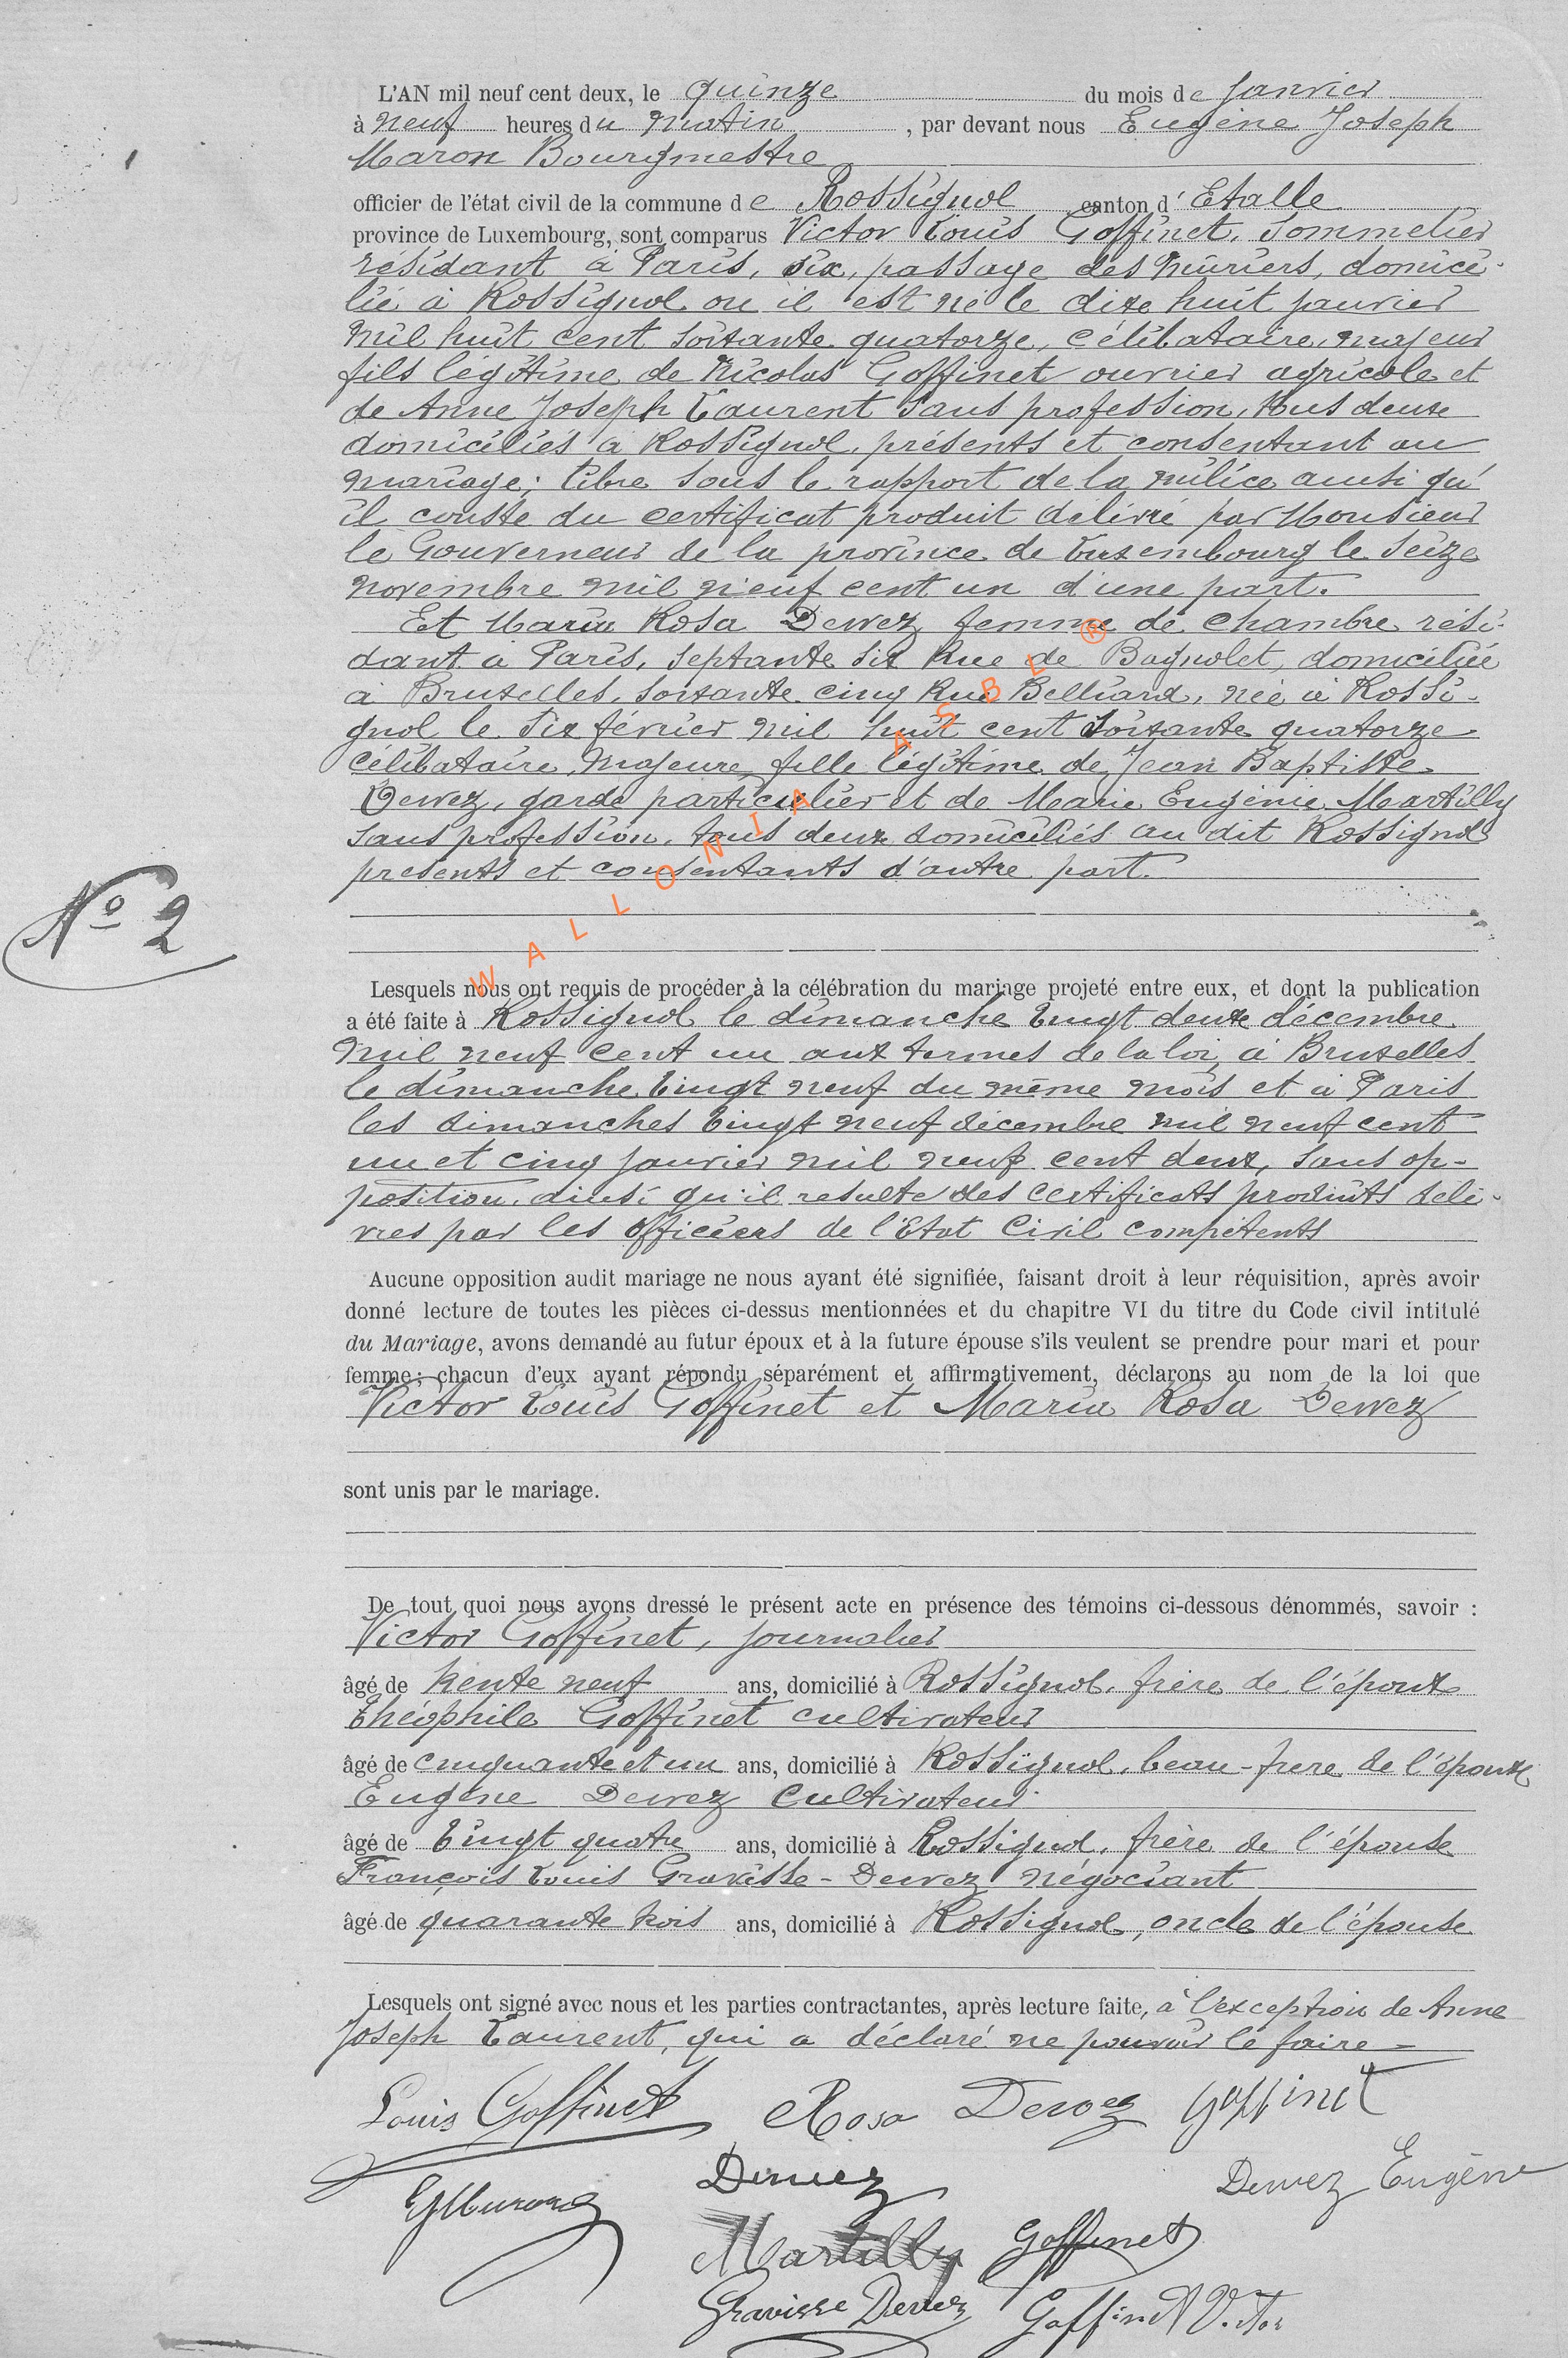 L'AN mil neuf cent deux, le quinze du mois de Janvier
à neuf heures du matin, par devant nous Eugène Joseph
Maron Bourgmestre
officier de l'état civil de la commune de Rossignol canton d'Etalle
province de Luxembourg, sont comparus Victor Louis Goffinet, sommelier
résidant à Paris, six, passage des Mûriers, domici-
lié à Rossignol où il est né le dixe huit janvier
mil huit cent soixante quatorze, célibataire, majeur
fils légitime de Nicolas Goffinet ouvrier agricole et
de Anne Joseph Laurent sans profession, tous deux
domiciliés à Rossignol, présents et consentant au
mariage; libre sous le rapport de la milice ainsi qu'
il conste du certificat produit délivré par Monsieur
le Gouverneur de la province de Luxembourg le seize
novembre mil neuf cent un d'une part.
Et Maria Rosa Dewez femme de chambre rési-
dant à Paris, septante six Rue de Bagnolet, domiciliée
à Bruxelles, soixante cinq Rue Belliard, née à Rossi-
gnol le six février mil huit cent soixante quatorze
célibataire, majeure fille légitime de Jean Baptiste
Dewez, garde particulier et de Marie Eugénie Martilly
sans profession, tous deux domiciliés au dit Rossignol
présents et consentants d'autre part.
WALLONIA ASBL ®
N° 2
Lesquels nous ont requis de procéder à la célébration du mariage projeté entre eux, et dont la publication
a été faite à Rossignol le dimanche vingt deux décembre
mil neuf cent un aux termes de la loi, à Bruxelles
le dimanche vingt neuf du même mois et à Paris
les dimanches vingt neuf décembre mil neuf cent
un et cinq janvier mil neuf cent deux, sans op-
position, ainsi qu'il resulte des certificats produits déli-
vrés par les officiers de l'Etat Civil compétents
Aucune opposition audit mariage ne nous ayant été signifiée, faisant droit à leur réquisition, après avoir
donné lecture de toutes les pièces ci-dessus mentionnées et du chapitre VI du titre du Code civil intitulé
du Mariage, avons demandé au futur époux et à la future épouse s'ils veulent se prendre pour mari et pour
femme; chacun d'eux ayant répondu séparément et affirmativement, déclarons au nom de la loi que
Victor Louis Goffinet et Maria Rosa Dewez
sont unis par le mariage.
De tout quoi nous avons dressé le présent acte en présence des témoins ci-dessous dénommés, savoir :
Victor Goffinet, journalier
âgé de trente neuf ans, domicilié à Rossignol, frère de l'époux
Théophile Goffinet cultivateur
âgé de cinquante et un ans, domicilié à Rossignol, beau-frère de l'époux
Eugène Dewez Cultivateur
âgé de vingt quatre ans, domicilié à Rossignol, frère de l'épouse
François Louis Gravisse-Dewez négociant
âgé de quarante trois ans, domicilié à Rossignol, oncle de l'épouse
Lesquels ont signé avec nous et les parties contractantes, après lecture faite, à l'exception de Anne
Joseph Laurent, qui a déclaré ne pouvoir le faire
Louis Goffinet Rosa Dewez Goffinet
EJMaron Dewez Dewez Eugène
Martilly Goffinet
Gravisse Dewez Goffinet Victor